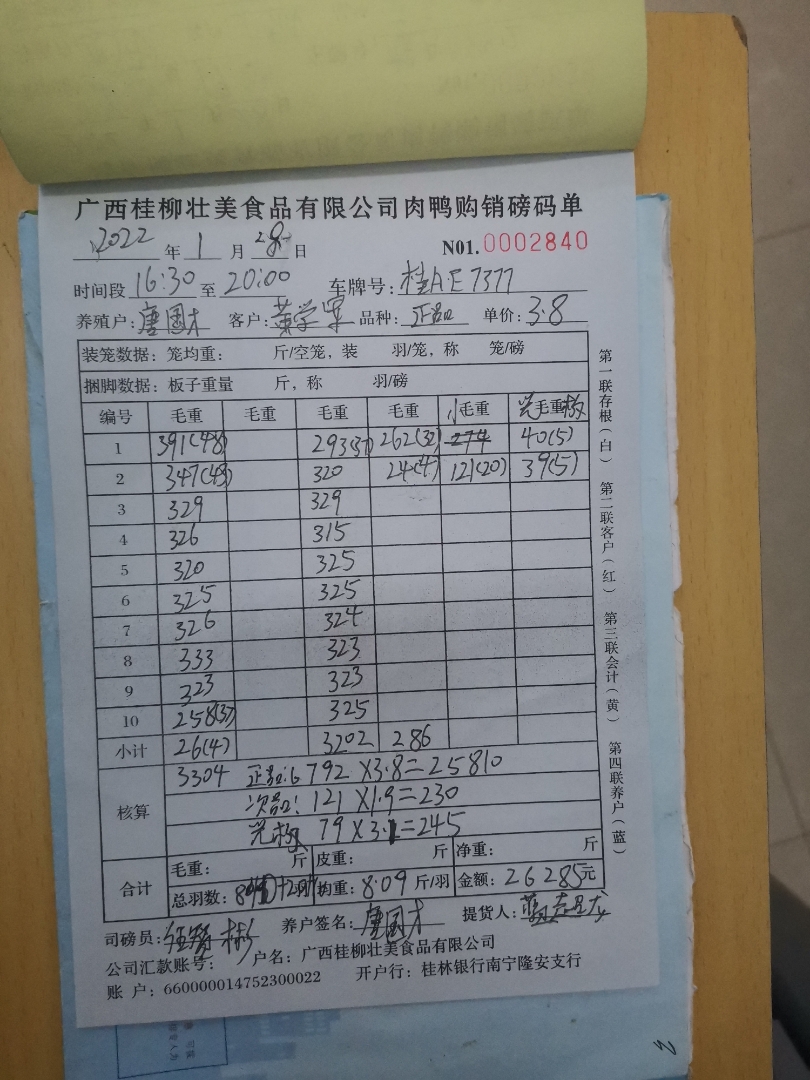 广西桂柳壮美食品有限公司肉鸭购销磅码单
2022 年 1 月 28 日 N01.0002840
时间段 16:30 至 20:00 车牌号: 桂A·E7377
养殖户: 唐国才 客户: 黄学军 品种: 正品 单价: 3.8
装笼数据: 笼均重: 斤/空笼, 装 羽/笼, 称 笼/磅
捆脚数据: 板子重量 斤, 称 羽/磅
编号 毛重 毛重 毛重 毛重 小毛重 毛重
1 391(48) 293(37) 262(32) 274 40(5)
2 347(43) 320 24(4) 121(20) 39(5)
3 329 329
4 326 315
5 320 325
6 325 325
7 326 324
8 333 323
9 323 323
10 258(37) 325
小计 26(4) 3202 286
核算 3304 正品:6792×3.8=25810
次品:121×1.9=230
79×3.1=245
合计 毛重: 斤 皮重: 斤 净重: 斤
总羽数: 均重: 8.09 斤/羽 金额: 26285元
司磅员: 养户签名: 唐国才 提货人:
公司汇款账号: 户名: 广西桂柳壮美食品有限公司
账 户: 660000014752300022 开户行: 桂林银行南宁隆安支行
第一联存根(白) 第二联客户(红) 第三联会计(黄) 第四联养户(蓝)